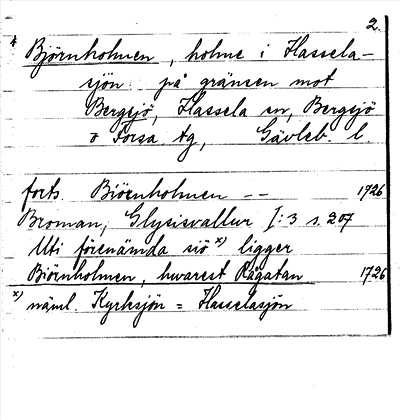 2.
* Björnholmen, holme i Hassela-
sjön på gränsen mot
Bergsjö, Hassela sn, Bergsjö
o Forsa tg, Gävleb. l.
forts. Biörnholmen -- 1726
Broman, Glysisvallur I:3 s. 207
Uti förenämda siö x) ligger
Biörnholmen, hwarest Rågatan 1726
x) näml. Kyrksjön = Hasselasjön